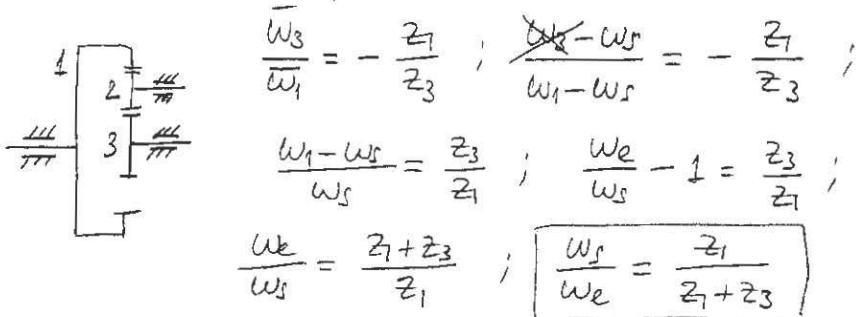 ω̅3/ω̅1 = - Z1/Z3 ; (ω3 - ωs)/(ω1 - ωs) = - Z1/Z3 ;
1
2
3
(ω1 - ωs)/ωs = Z3/Z1 ; ωe/ωs - 1 = Z3/Z1 ;
ωe/ωs = (Z1 + Z3)/Z1 ; ωs/ωe = Z1/(Z1 + Z3)